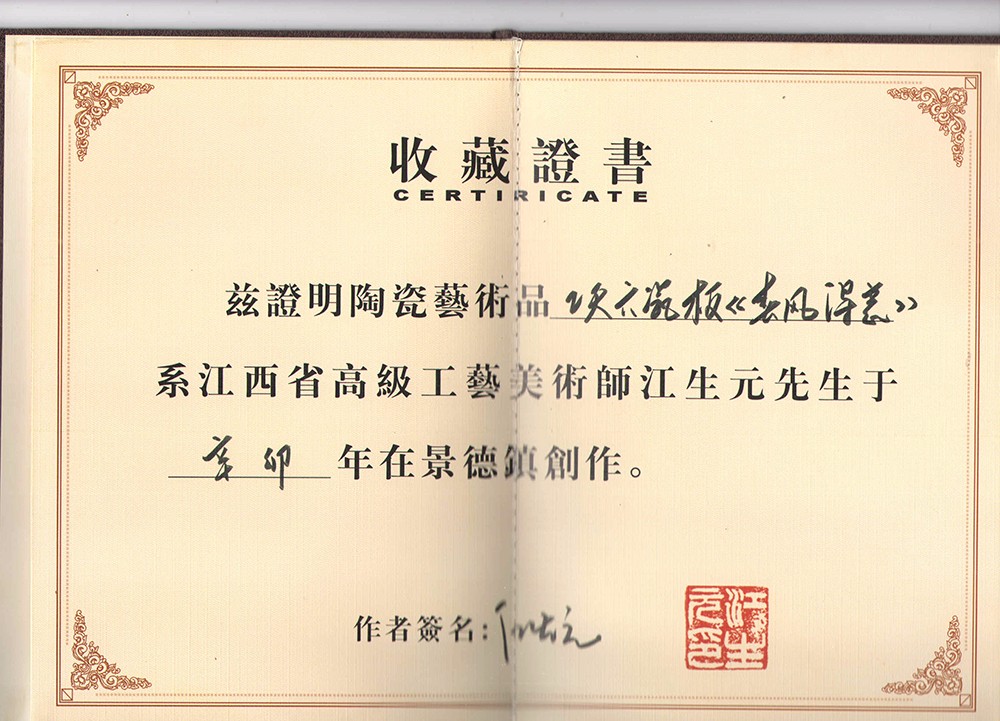 收藏證書
CERTIRICATE
兹證明陶瓷藝術品 六瓷板《春风得意》
系江西省高級工藝美術師江生元先生于
辛卯年在景德鎮創作。
作者簽名:
江生元印